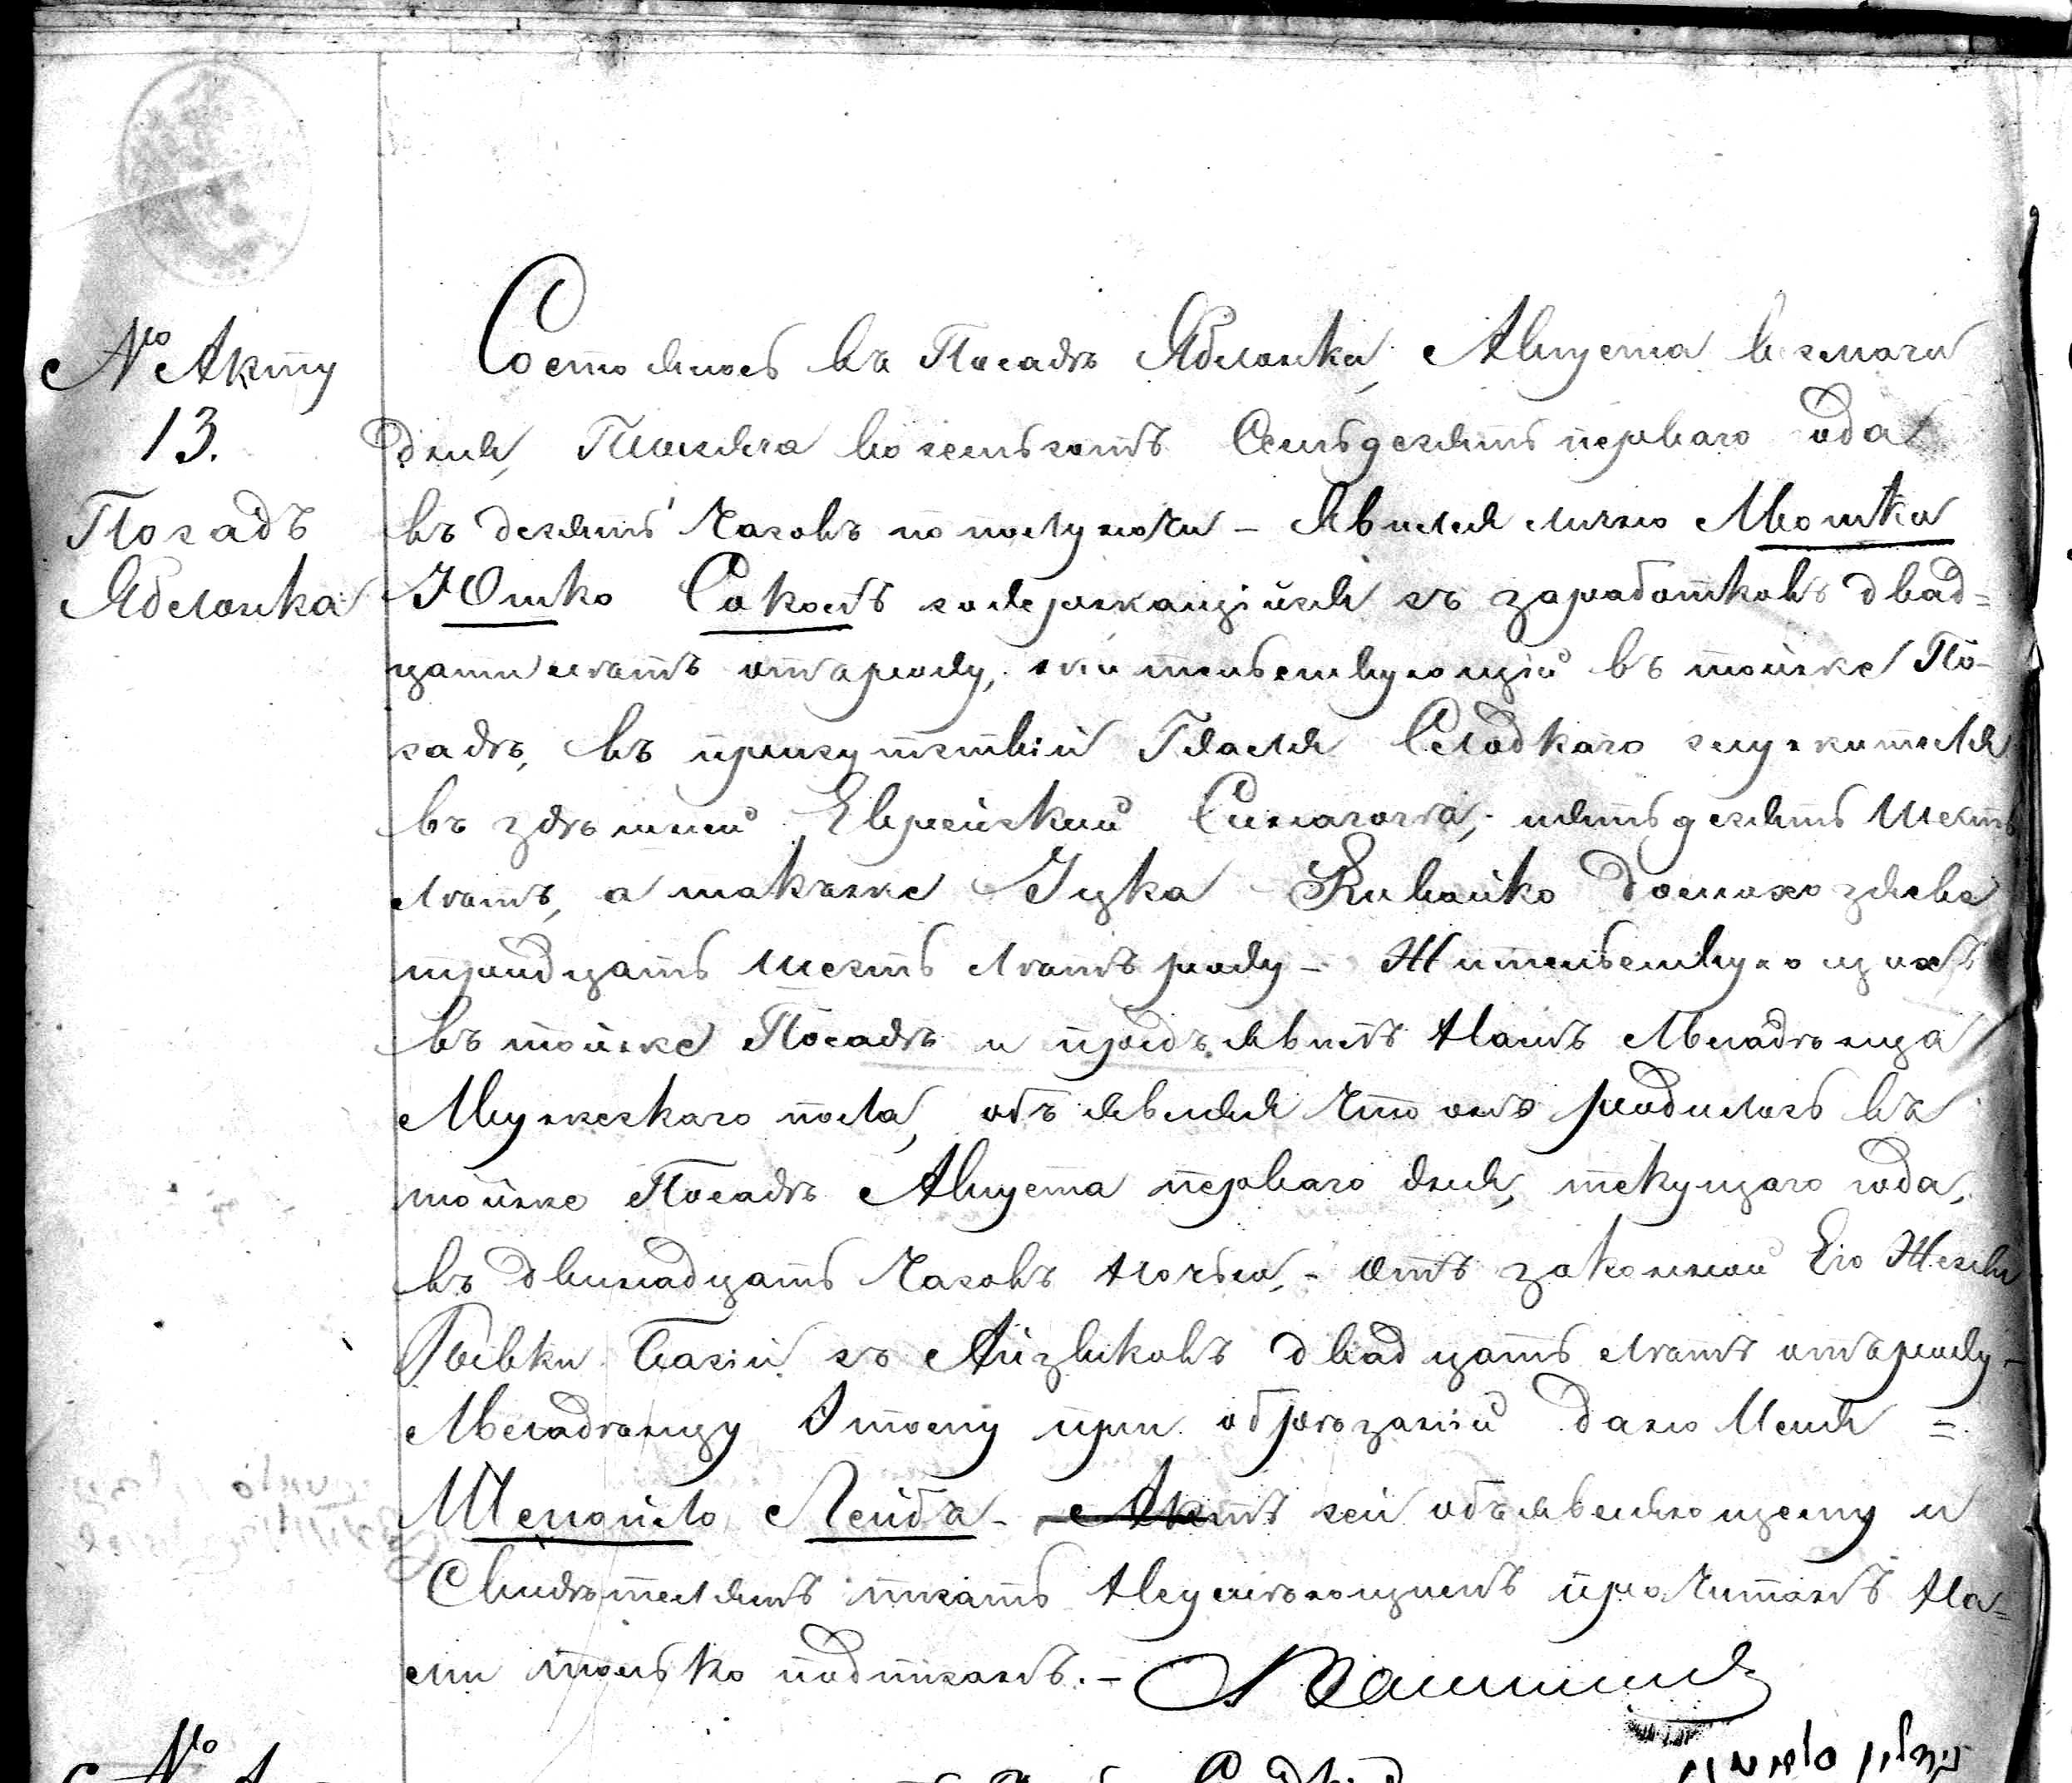 № Акту
13.
Посадъ
Яблонка
Состоялось въ Посадѣ Яблонка, Августа
дня, Тысяча восемьсотъ Семьдесятъ перваго года
въ десять часовъ по полуночи – Явился лично Мошка
Юшко Соколъ содержающійся съ заработковъ двад=
цати лѣтъ отъ роду, жительствующій въ тойже По-
садѣ, въ присутствіи Сладкаго служителя
въ здѣшней Еврейский Синагога, пятьдесятъ шесть
лѣтъ, а такъже Ицка Кивайко домохозяева
тридцать шесть лѣтъ роду – Жительствующихъ
въ тойже Посадѣ и предъявилъ Намъ Младѣнца
Мужескаго пола, объявляя что онъ родилось въ
тойже Посадѣ Августа перваго дня, текущаго года,
въ двинадцать часовъ ночью, – отъ законной Его Жены
Рывки Басіи съ Айзыковъ двадцать лѣтъ отъ роду –
Младѣнцу Этому при обрѣзаніи дано Имя =
Шепсейло Лейба – Актъ сей объявляющему и
Свидѣтелямъ писать Неумѣющимъ прочитанъ На=
ми только подписанъ. –
№